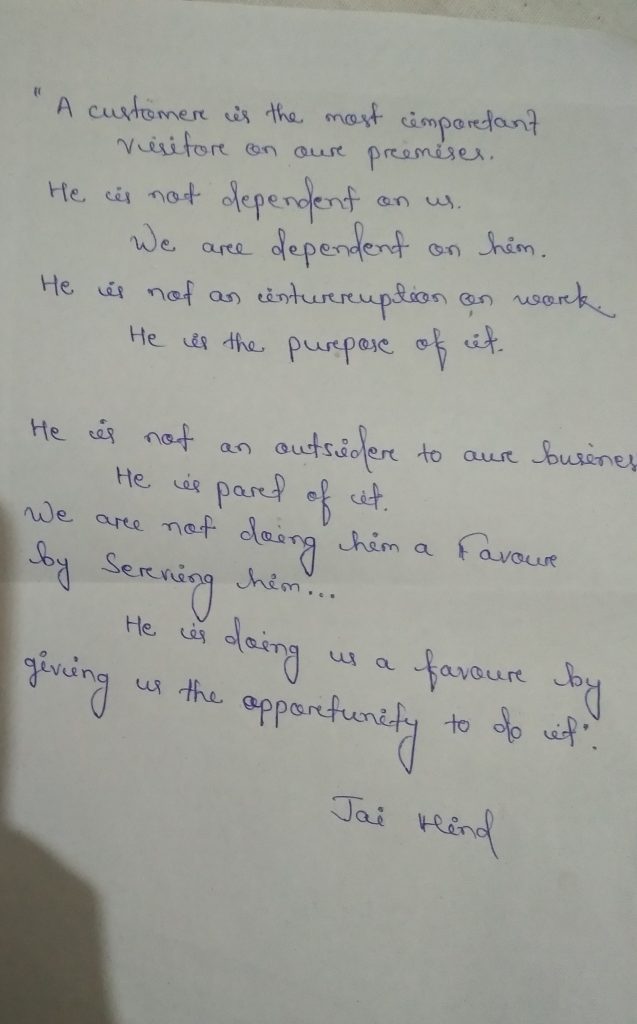 "A customer is the most important
visitor on our premises.
He is not dependent on us.
We are dependent on him.
He is not an inturruption on work.
He is the purpose of it.
He is not an outsider to our busines
He is part of it.
We are not doing him a Favour
by Serving him...
He is doing us a favour by
giving us the opportunity to do it".
Jai Hind